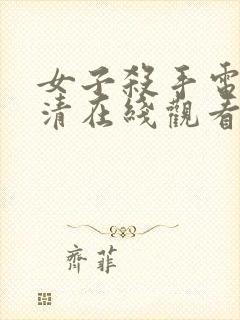 女子殺手電
清在綫觀看
齊菲